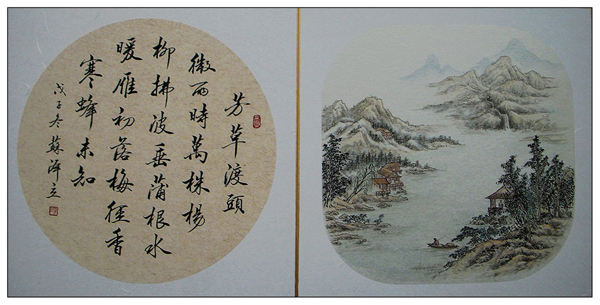 芳草渡頭
微雨時萬株楊
柳拂波垂蒲根水
暖雁初落梅徑香
寒蜂未知
戊子冬蘇澤立